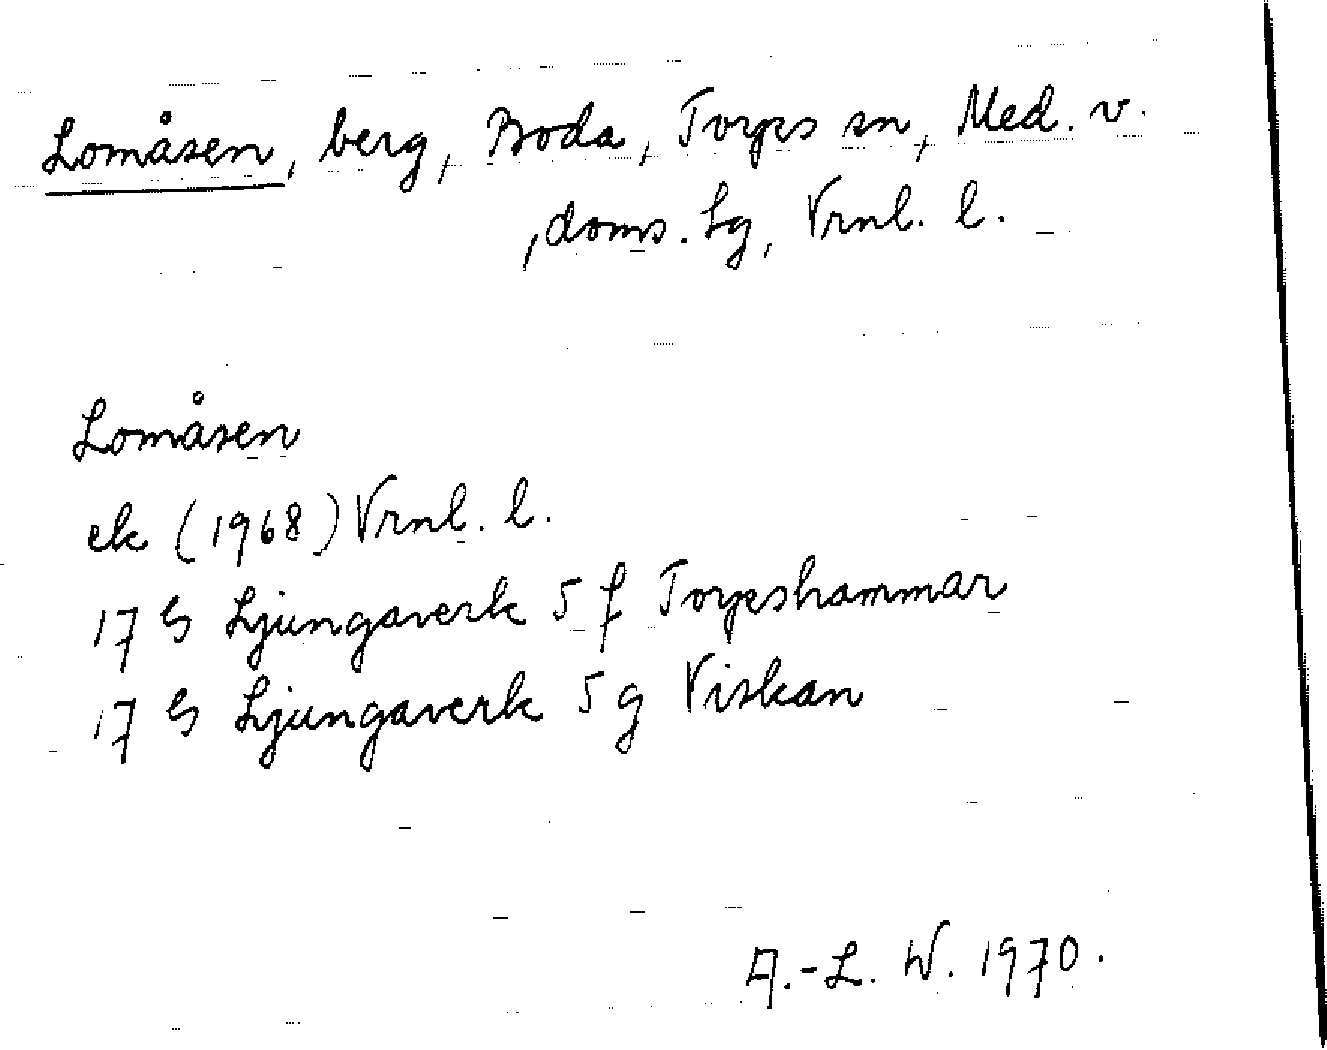 Lomåsen, berg, Boda, Torps sn, Med. v.
, doms. hg, Vrnl. l.
Lomåsen
ek (1968) Vrnl. l.
17 G Ljungaverk 5 f Torpshammar
17 G Ljungaverk 5 g Viskan
A.-L. W. 1970.